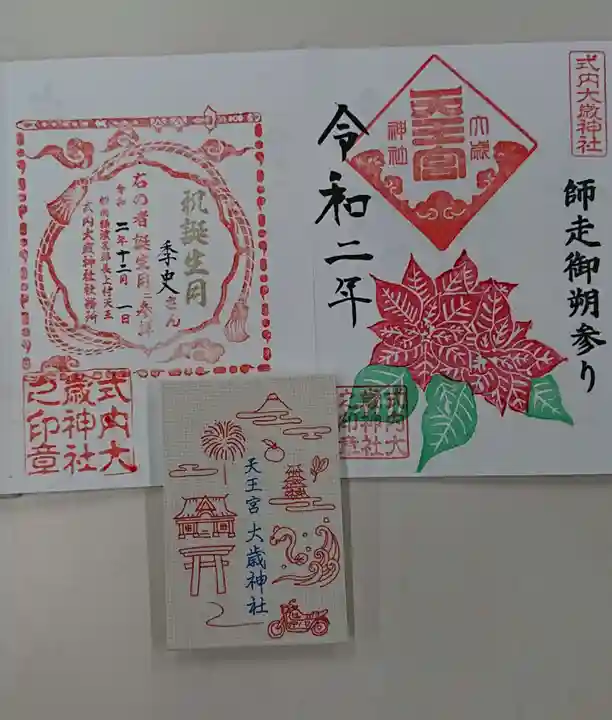 式内大歳神社
師走御朔参り
大歳
神社
天王宮
令和二年
式内大
歳神社
之印章
祝誕生月
季史さん
右の者誕生月に参拝
令和二年十二月一日
式内大歳神社社務所
式内大
歳神社
之印章
天王宮 大歳神社